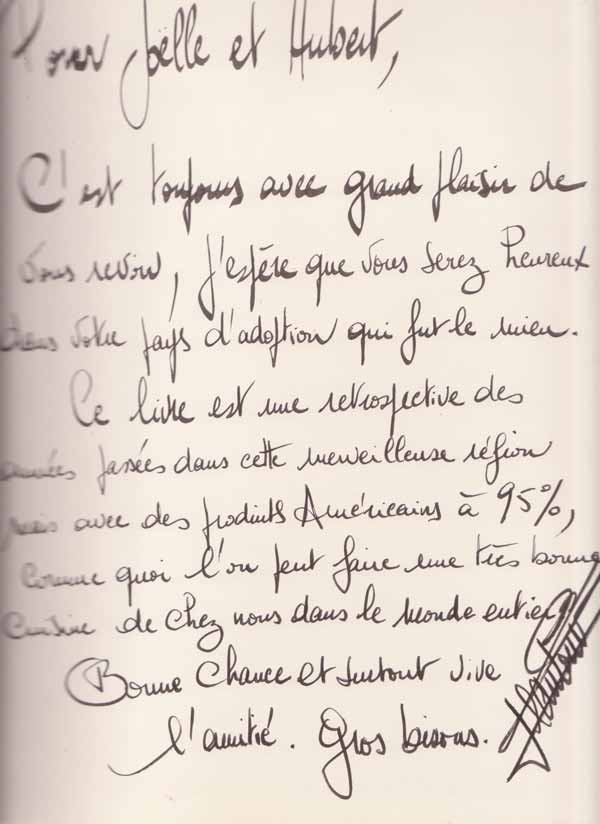 Pour Joëlle et Hubert,
C'est toujours avec grand plaisir de
vous revoir, j'espère que vous serez heureux
dans votre pays d'adoption qui fut le mien.
Ce livre est une retrospective des
années passées dans cette merveilleuse région
mais avec des produits Américains à 95%,
comme quoi l'on peut faire une très bonne
cuisine de chez nous dans le monde entier
Bonne Chance et surtout vive
l'amitié. Gros bisous.